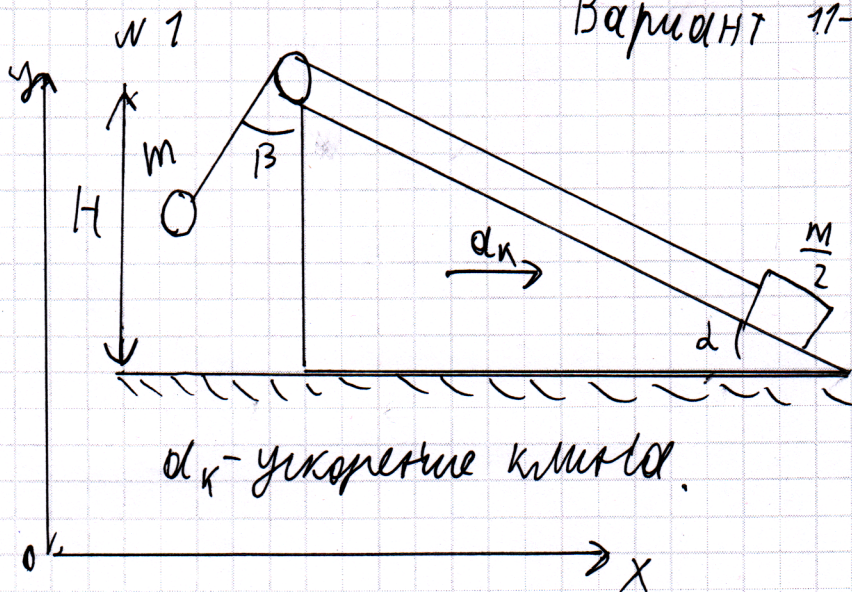 N1
Вариант 11-
y
m
β
H
aк
m
2
α
aк - ускорение клина.
0
X